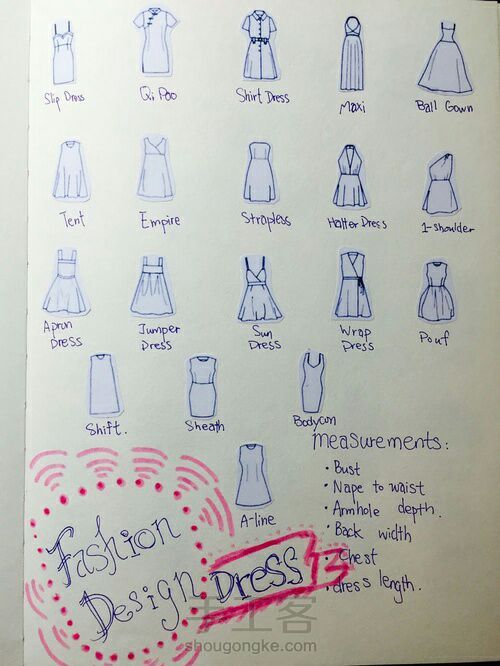 Slip Dress
Qi Pao
Shirt Dress
Maxi
Ball Gown
Tent
Empire
Strapless
Halter Dress
1-shoulder
Apron
Dress
Jumper
Dress
Sun
Dress
Wrap
Dress
Pouf
Shift.
Sheath
Bodycon
A-line
Measurements:
• Bust
• Nape to waist
• Armhole depth.
• Back width
• Chest
• dress length.
Fashion
Design Dress
手工客
shougongke.com